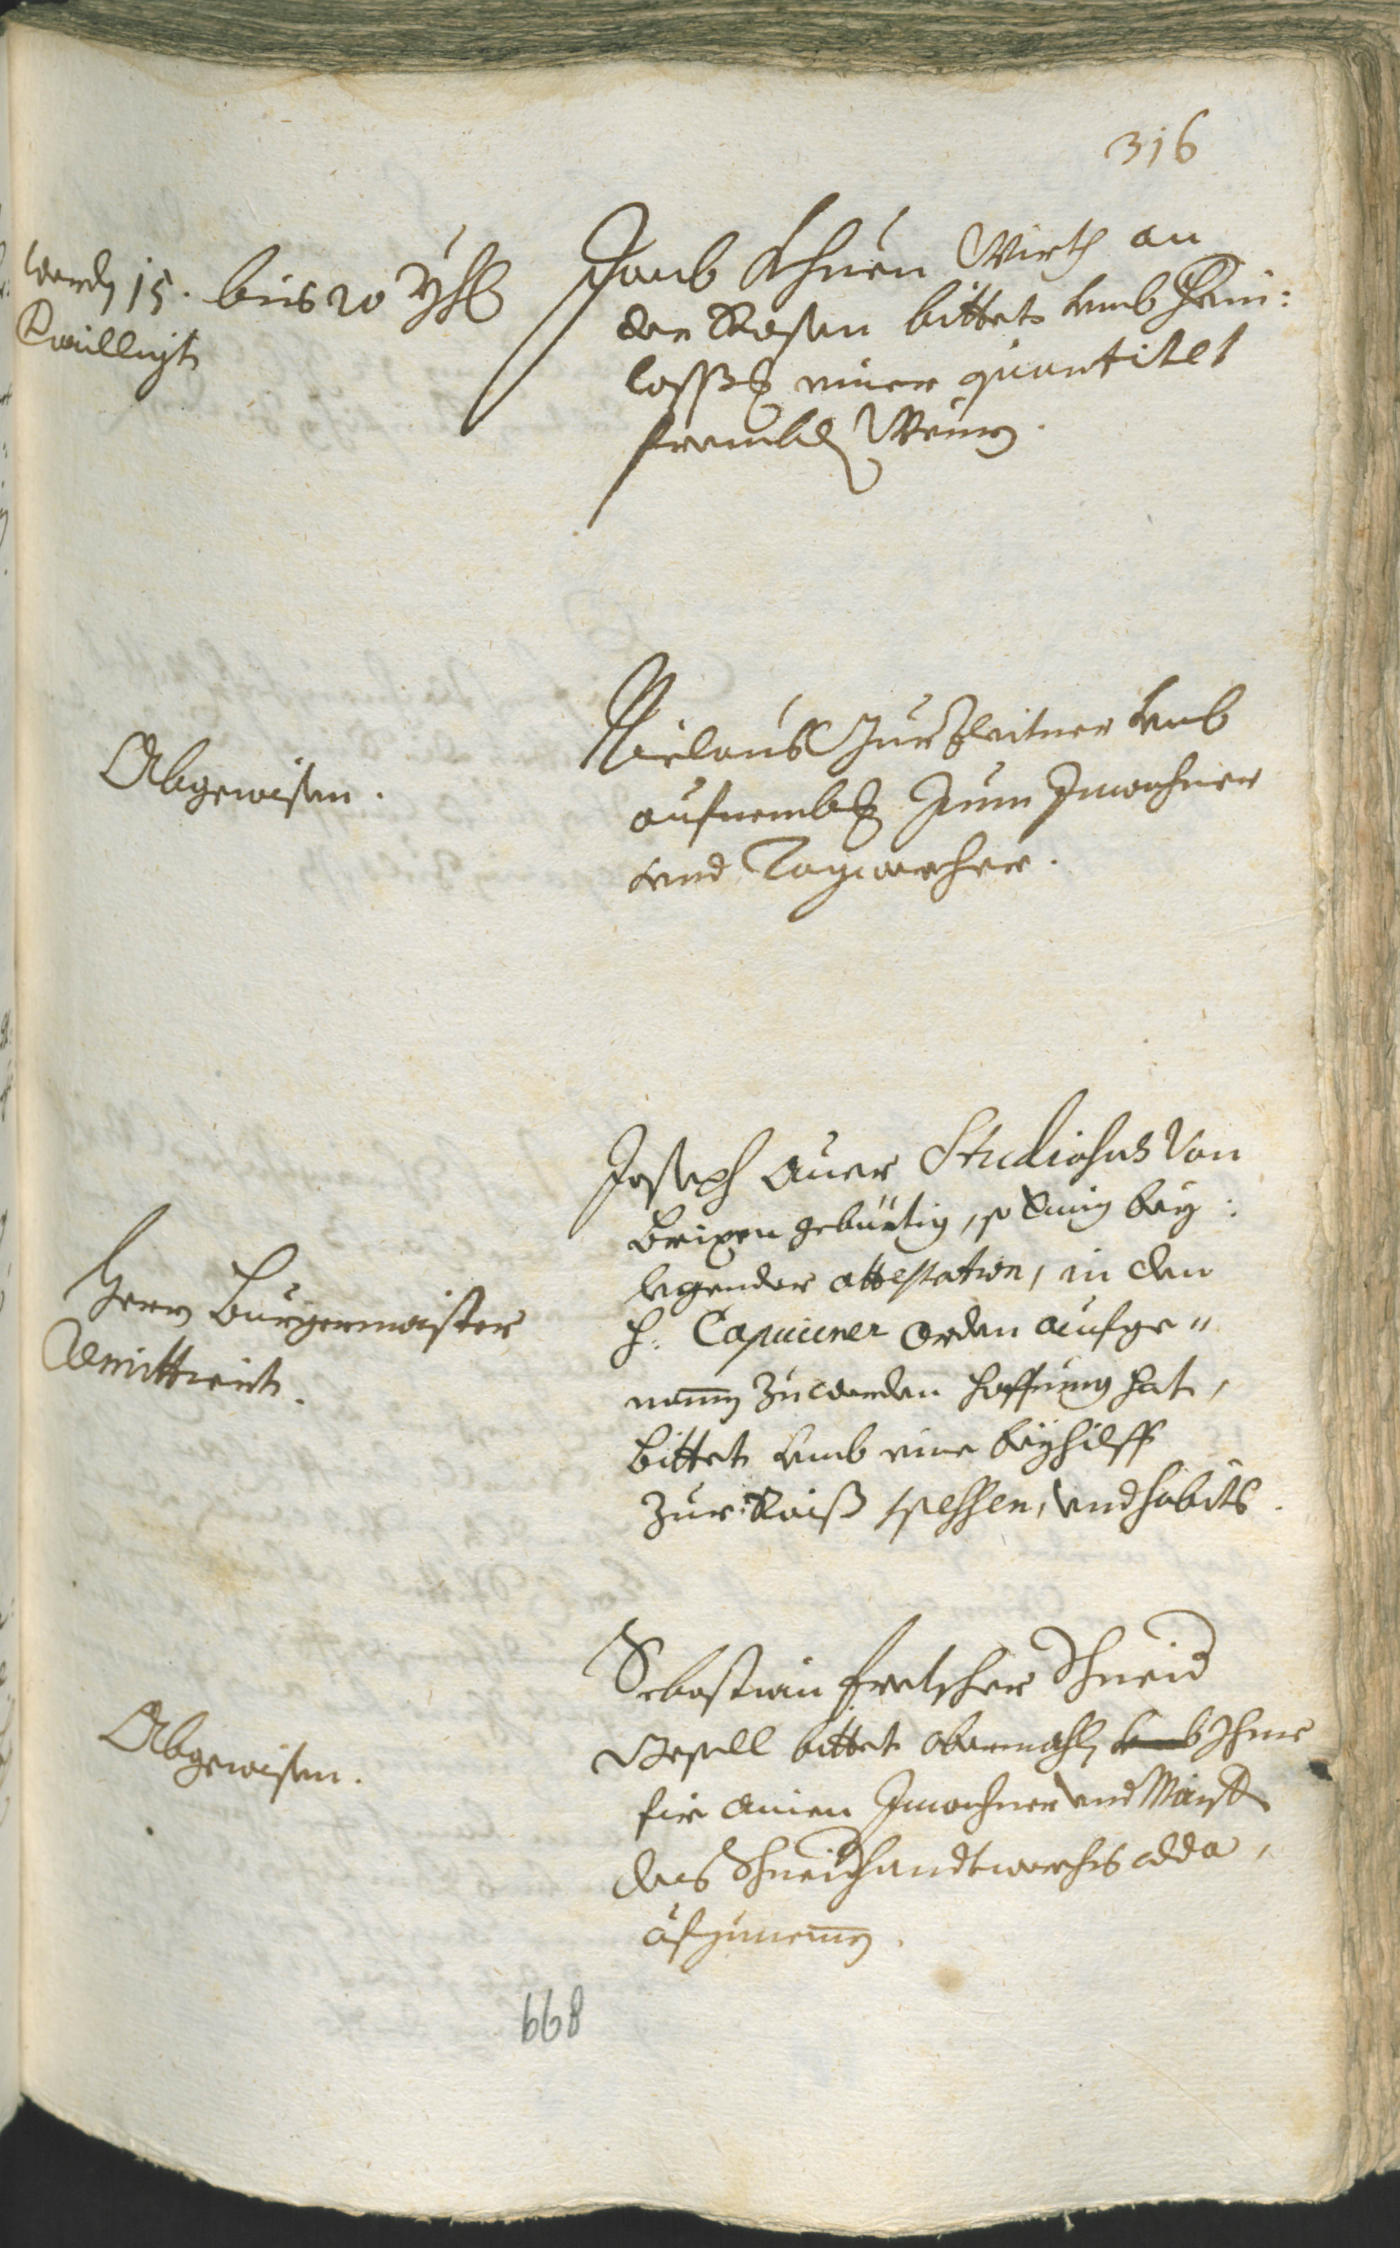 316
werdn 15. biß 20 Yhrn
bewilligt
Jacob Khuen Wirth an
der Rosen bittet umb Herein:
lassung einer quantitet
frembdn Weins.
Abgewisen.
Niclauß Zurßleitner umb
aufnembung zum Inwohner
und Tagwercher.
Herrn Burgermaister
Remittiert.
Joseph Auer Studiosus von
Brixen gebürtig, so beÿ:
legender attestation, in den
H: Capuciner Orden aufge"
nomen zuwerden hoffnung hat,
bittet umb eine beÿhilff
zur Raiß spessen, und habits.
Abgewisen.
Sebastian Fretscher Schneid
Gesell bittet abermahln umb Ihme
für ainen Inwohner und Maister
des Schneiderhandtwerchs alda,
aufzunemen.
668